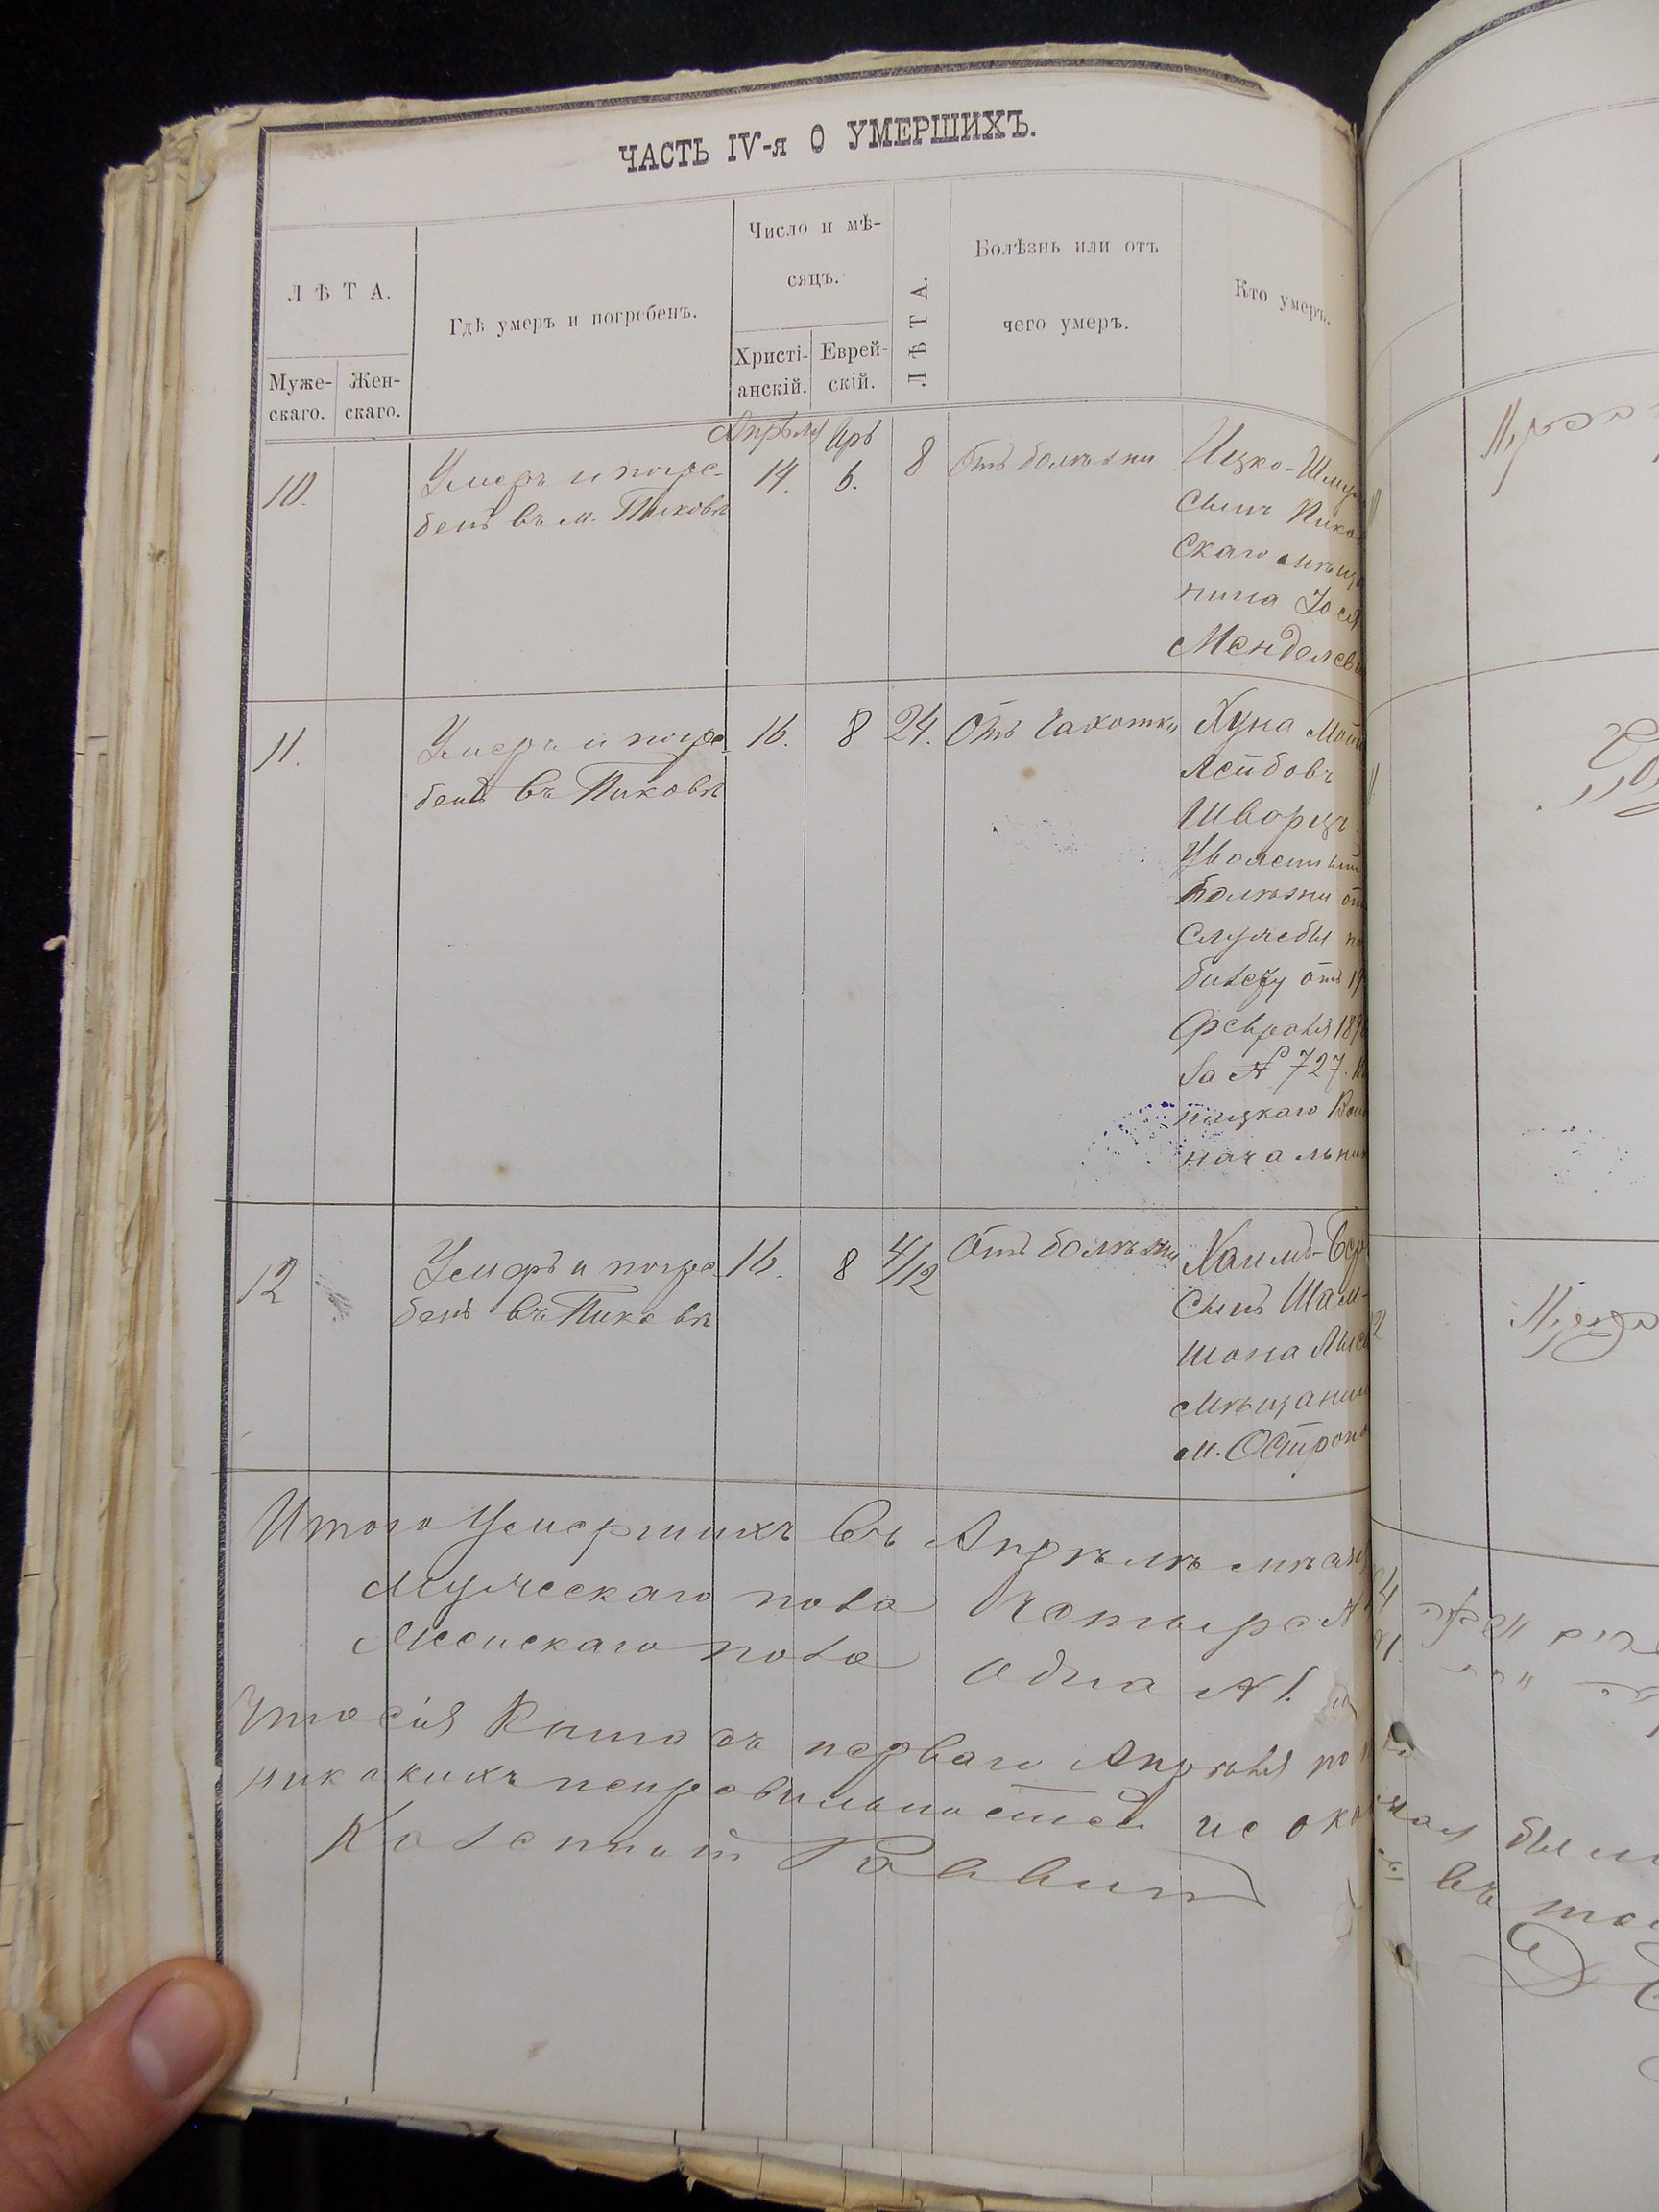 ЧАСТЬ IV-я О УМЕРШИХЪ.
ЛѢТА.
Муже-
скаго.
Жен-
скаго.
Гдѣ умеръ и погребенъ.
Число и мѣ-
сяцъ.
Христі-
анскій.
Еврей-
скій.
ЛѢТА.
Болѣзнь или отъ
чего умеръ.
Кто умеръ.
10.
Умеръ и погре-
бенъ въ м. Пиковѣ
Апрѣля
14.
Иръ
6.
8
Отъ болѣзни
Ицко-Шму
сынъ Пико
скаго мѣща
нина Іося
Менделеви
11.
Умеръ и погре-
бенъ въ Пиковѣ
16.
8
24.
Отъ Чахотки
Хуна
Лейбовъ
Шворцъ
Уволенный
болѣзни от
Службы по
билету отъ 19
Февраля 18
За № 727.
ницкаго Воин
начальник
12
Умеръ и погре
бенъ въ Пиковѣ
16.
8
4/12
Отъ болѣзни
Хаимъ-Бер
Сынъ Шам-
шона
Мѣщанин
м. Остропо
Итого Умершихъ въ Апрѣлѣ
Мужескаго пола Четыре №
Женскаго пола одна № 1.
Что сія Книга съ перваго Апрѣля по
никакихъ неправильностей не ока
Казенный Раввинъ